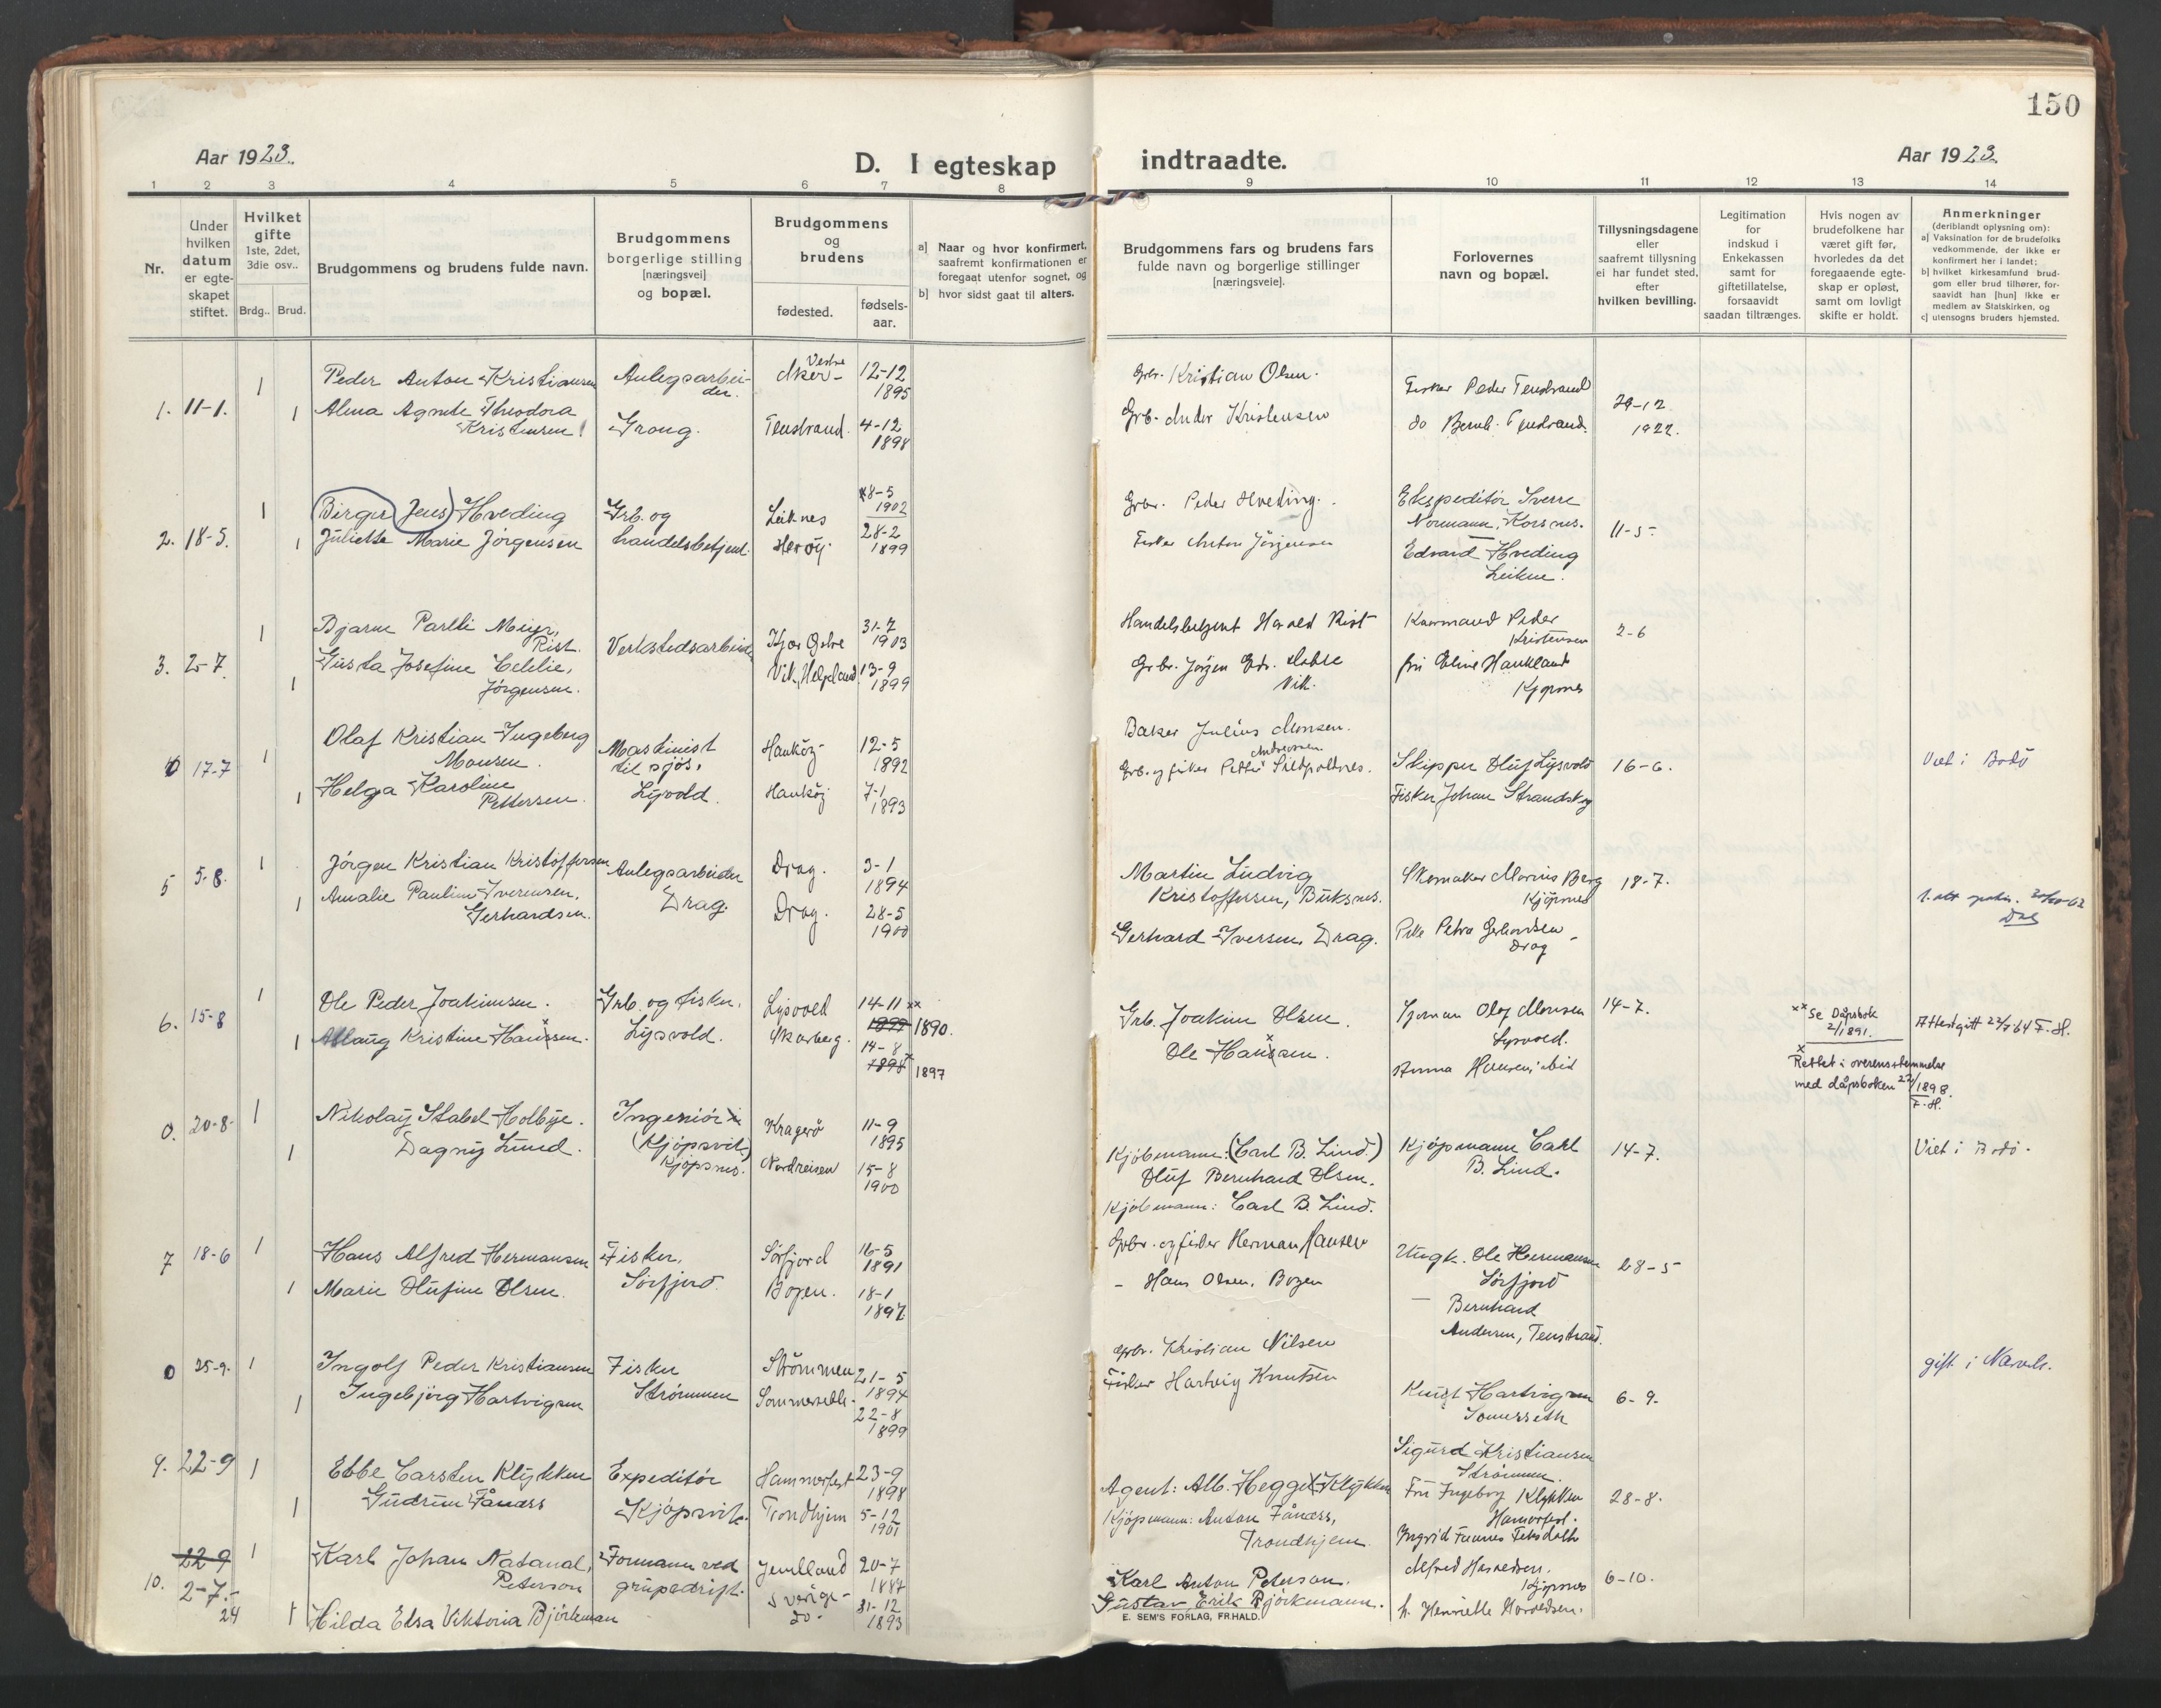 150
Aar 1923.
D. I egteskap indtraadte.
Aar 1923.
1 2 3 4 5 6 7 8 9 10 11 12 13 14
Nr.
Under hvilken datum er egte-skapet stiftet.
Hvilket gifte
1ste, 2det, 3die osv..
Brdg.. Brud.
Brudgommens og brudens fulde navn.
Brudgommens borgerlige stilling [næringsvei] og bopæl.
Brudgommens og brudens
fødested.
fødsels-aar.
a] Naar og hvor konfirmert, saafremt konfirmationen er foregaat utenfor sognet, og
b] hvor sidst gaat til alters.
Brudgommens fars og brudens fars fulde navn og borgerlige stillinger [næringsveie].
Forlovernes navn og bopæl.
Tillysningsdagene eller saafremt tillysning ei har fundet sted, efter hvilken bevilling.
Legitimation for indskud i Enkekassen samt for giftetillatelse, forsaavidt saadan tiltrænges.
Hvis nogen av brudefolkene har været gift før, hvorledes da det foregaaende egte-skap er opløst, samt om lovligt skifte er holdt.
Anmerkninger
(deriblandt oplysning om):
a] Vaksination for de brudefolks vedkommende, der ikke er konfirmert her i landet;
b] hvilket kirkesamfund brud-gom eller brud tilhører, for-saavidt han [hun] ikke er medlem av Statskirken, og
c] utensogns bruders hjemsted.
1. 11-1. 1 Peder Anton Kristiansen Anlegsarbei-der. Vestre Aker- 12-12 1895 Grbr. Kristian Olsen. Fisker Peder Tenstrand 29-12 1922.
1 Alma Agnete Theodora Kristensen Grong. Tenstrand. 4-12 1898 Grb. Ander Kristensen do Bernh. Tenstrand.
2. 18-5. 1 Birger (Jens) Hveding Grb. og handelsbetjent. Leiknes 8-5 1902 Grbr. Peder Hveding. Ekspeditør Sverre Normann, Korsnes. 11-5-
1 Juliette Marie Jörgensen Herøy. 28-2 1899 Fisker Anton Jörgensen Edvard Hveding
3. 2-7. 1 Bjarne Parelli Meyer Rist. Verkstedsarbeider 31-7 1903 Handelsbetjent Harald Rist Peder Kristensen 2-6
1 Gusta Josefine Jörgensen. Vik, Helgeland 13-9 1899 Grbr. Jörgen Vik. fru Eline Haukland Kjøpsnes
0 17-7 1 Olaf Kristian Ingeberg Monsen. Maskinist til sjøs. Lysvold. Hankøy- 12-5 1892 Baker Julius Monsen. Skipper Oluf Lysvold 16-6. Viet i Bodö
1 Helga Karoline Pettersen. Hankøy 7-1 1893 Grb. og fisker Petter Andreassen Fisker Johan Strandskog
5 5-8. 1 Jörgen Kristian Kristoffersen Anlegsarbeider Drag. Drag. 3-1 1894 Martin Ludvig Kristoffersen, Buksnes. Skomaker Marius Berg Kjöpsnes 18-7.
1 Amalie Pauline Iverensen. Gerhardsen. Drag. 28-5 1900 Gerhard Iversen, Drag. Petra Gerhardsen Drag
6. 15-8 1 Ole Peder Joakimsen. Grb. og fisker. Lysvold. Lysvold 14-11 xx 1890. Grb. Joakim Olsen. Olaf Monsen Lysvold. 14-7. xx Se Dåpsbok 2/1891. Attest gitt 22/5 64 F. H.
1 Aslaug Kristine Hansen. Skarberg. 14-8 1898 x 1897 Ole Hansen. Anna Hansen, ibid
x Rettet i overensstemmelse med dåpsboken 22/1898. F. H.
0. 20-8- 1 Nikolay Stabel Holbye. Ingeniör (Kjøpsvik) Kjöpsnes. Kragerö 11-9 1895 Kjöbmann: (Carl B. Lind.) Oluf Bernhard Olsen. Kjöpmann Carl B. Lind. 14-7. Viet i Bodö.
1 Dagny Lund. Nordreisen 15-8 1900 Kjöbmann: Carl B. Lind.
7 18-6 1 Hans Alfred Hermansen Fisker, Sörfjord. Sörfjord 16-5 1891 Grbr. og fisker Herman Hansen Ungk. Ole Hermansen Sörfjord 28-5
1 Marie Olufine Olsen. Bogen. 18-1 1897 - Hans Olsen, Bogen - Bernhard Andersen, Tenstrand.
0 25-9. 1 Ingolf Peder Kristiansen Fisker Strömmen Strömmen 21-5 1894 Grbr. Kristian Nilsen Knut Hartvigsen 6-9. gift i Narvik.
1 Ingebjörg Hartvigsen Sommerseth. 22-8 1899 Fisker Hartvig Knutsen Sigurd Kristiansen Strömmen.
9. 22-9 1 Ebbe Carsten Klykken Expeditör Kjøpsvik. Hammerfest 23-9 1898 Agent: Alb. Hegge Klykken Fru Ingeborg Klykken Hamerfest. 28-8.
1 Gudrun Fånæss Trondhjem 5-12 1901 Kjøpmann: Anton Fånæss, Trondhjem.
10. 22-9 2-7- 24 1 Karl Johan Natanal, Peterson Formann ved grupedrift. Jemtland Sverige- 20-7 1884 Karl Anton Peterson. Alfred Kjöpsnes 6-10.
1 Hilda Elsa Viktoria Björkman do- 31-12 1893 Gustav Erik Björkmann. Henriette
E. SEM'S FORLAG, FR.HALD.